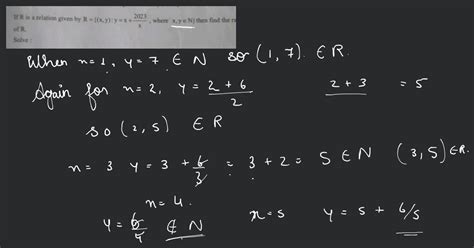 If R is a relation given by R = {(x, y) : y = x + 2023/x, where x, y ∈ N} then find the
of R.
Solve :
When n=1, y = 7 ∈ N so (1, 7) ∈ R.
Again for n=2, y = 2 + 6/2 2 + 3 = 5
so (2, 5) ∈ R
n = 3 y = 3 + 6/3 = 3 + 2 = 5 ∈ N (3, 5) ∈ R.
n = 4
y = 6/4 ∉ N x = 5 y = 5 + 6/5